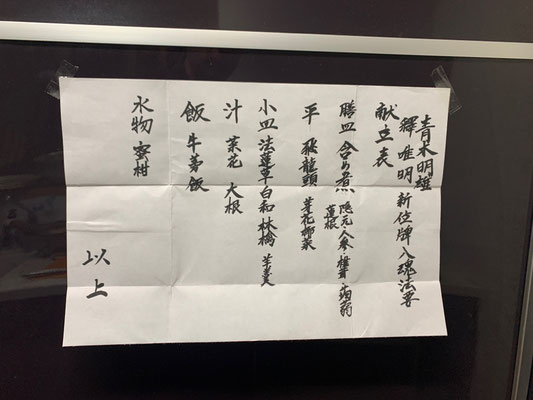 青木明雄
釋 唯明 新位牌入魂法要
献立表
膳皿 含め煮 隠元・人参・椎茸・蒟蒻
蓮根
平 飛龍頭 芽花椰菜
小皿 法蓮草白和 林檎
汁 菜花 大根
飯 牛蒡飯
水物 蜜柑
以上